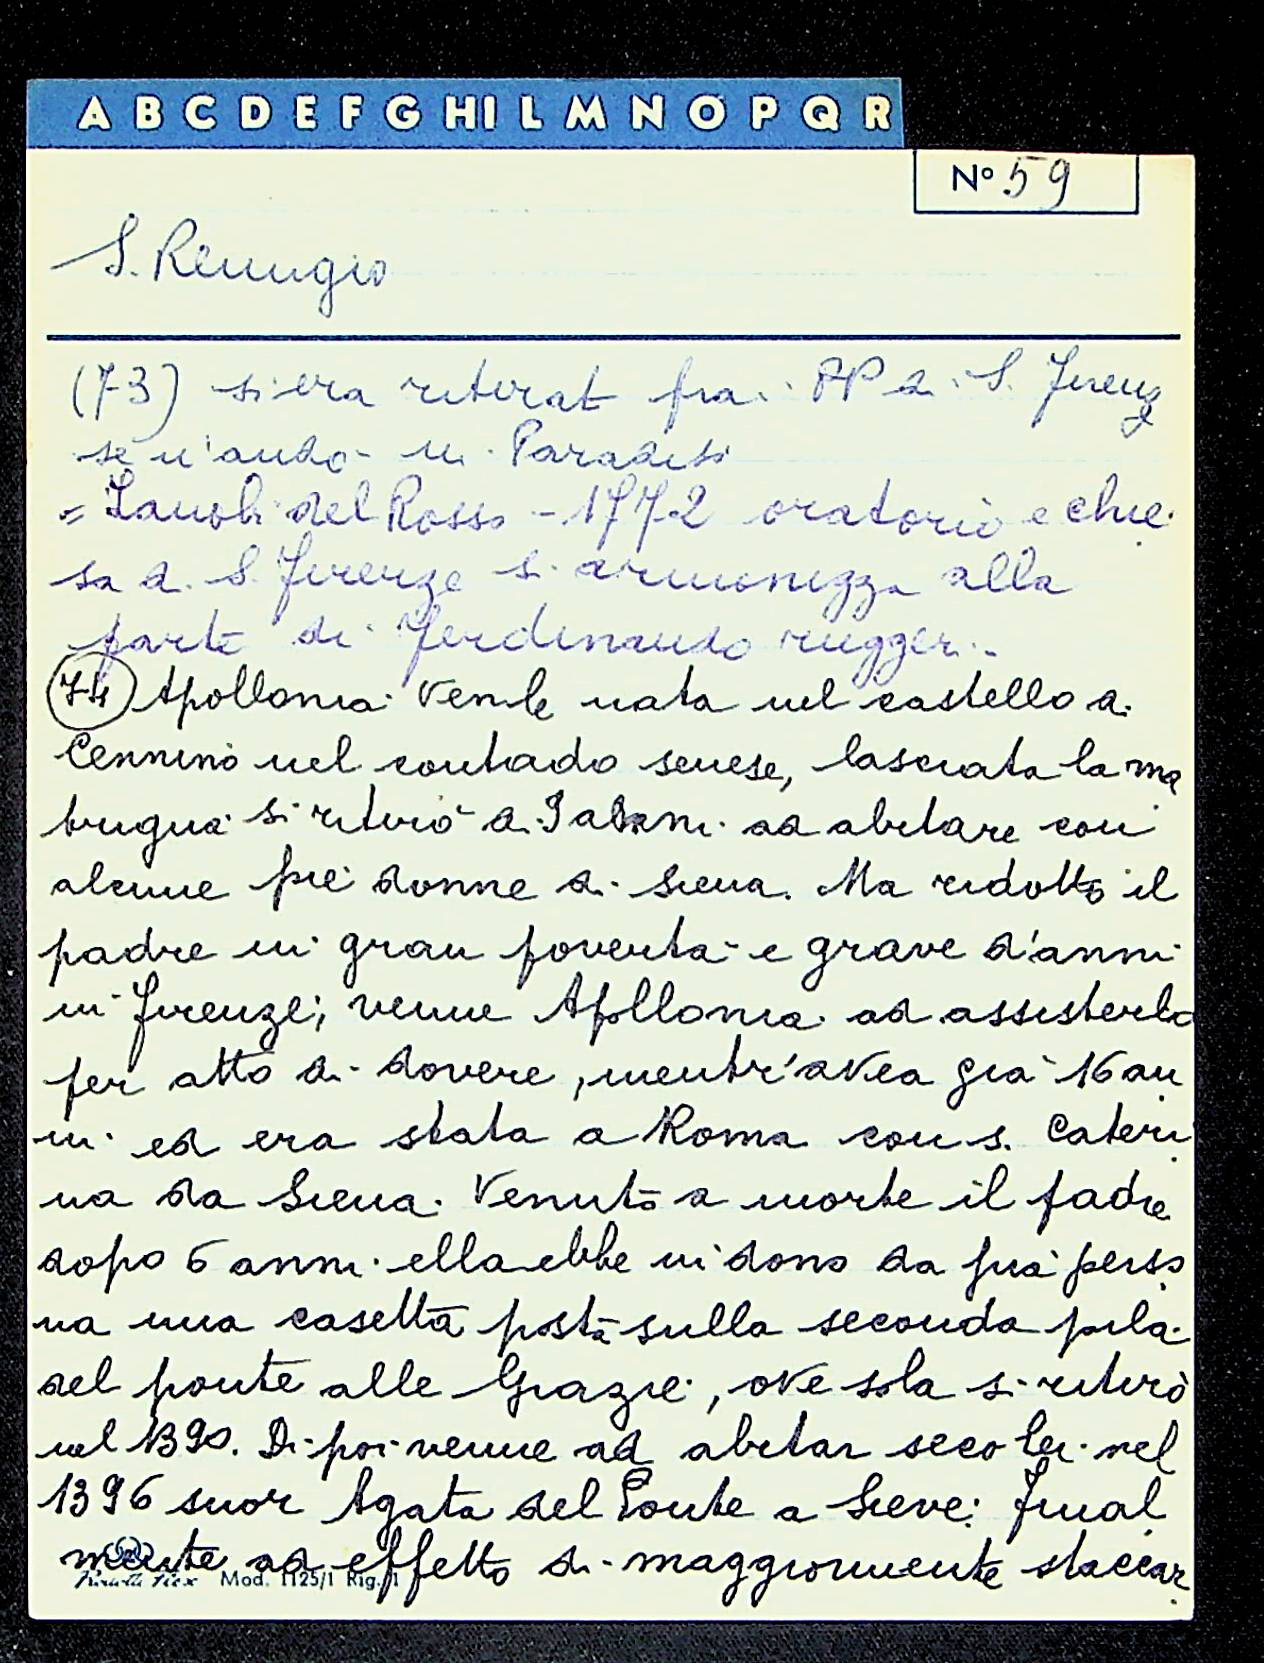 A B C D E F G H I L M N O P Q R
N° 59
S. Remigio
(73) si era ritirat fra i PP di S. Firenz
se n'andò in Paradisi
= Zanobi del Rosso - 1772 oratorio e chie
sa di S. Firenze si armonizza alla
parte di Ferdinando rugger..
74 Apollonia nata nel castello di
Cennino nel contado senese, lasciata la ma
trigna si ritirò a ad abitare con
alcune pie donne di Siena. Ma ridotto il
padre in gran povertà e grave d'anni
in Firenze; venne Apllonia ad assisterlo
per atto di dovere, mentr'avea già 16 an
ni ed era stata a Roma con s. Cateri
na da Siena. Venuto a morte il padre
dopo 6 anni ella ebbe in dono da pia perso
na una casetta posta sulla seconda pila
del ponte alle Grazie, ove sola si ritirò
nel 1390. Di poi venne ad abitar seco lei nel
1396 suor Agata del Ponte a Sieve: Final
mente ad effetto di maggiormente staccar
Mod. 1125/1 Rig. 1